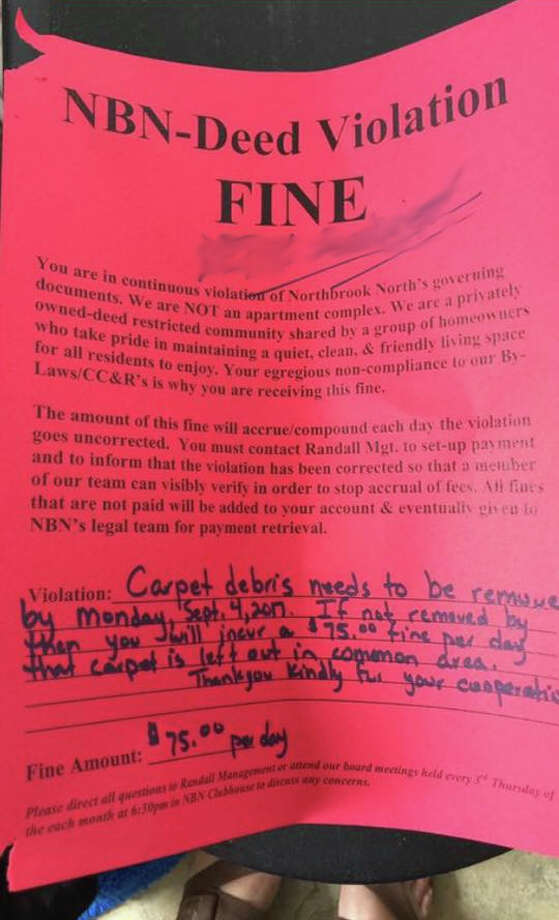 NBN-Deed Violation
FINE
You are in continuous violation of Northbrook North's governing
documents. We are NOT an apartment complex. We are a privately
owned-deed restricted community shared by a group of homeowners
who take pride in maintaining a quiet, clean, & friendly living space
for all residents to enjoy. Your egregious non-compliance to our By-
Laws/CC&R's is why you are receiving this fine.
The amount of this fine will accrue/compound each day the violation
goes uncorrected. You must contact Randall Mgt. to set-up payment
and to inform that the violation has been corrected so that a member
of our team can visibly verify in order to stop accrual of fees. All fines
that are not paid will be added to your account & eventually given to
NBN's legal team for payment retrieval.
Violation: Carpet debris needs to be remove
by Monday, Sept. 4, 2017. If not removed by
then you will incur a $75.00 fine per day
that carpet is left out in common area.
Thankyou Kindly for your cooperatio
Fine Amount: $75.00 per day
Please direct all questions to Randall Management or attend our board meetings held every 3rd Thursday of
the each month at 6:30pm in NBN Clubhouse to discuss any concerns.